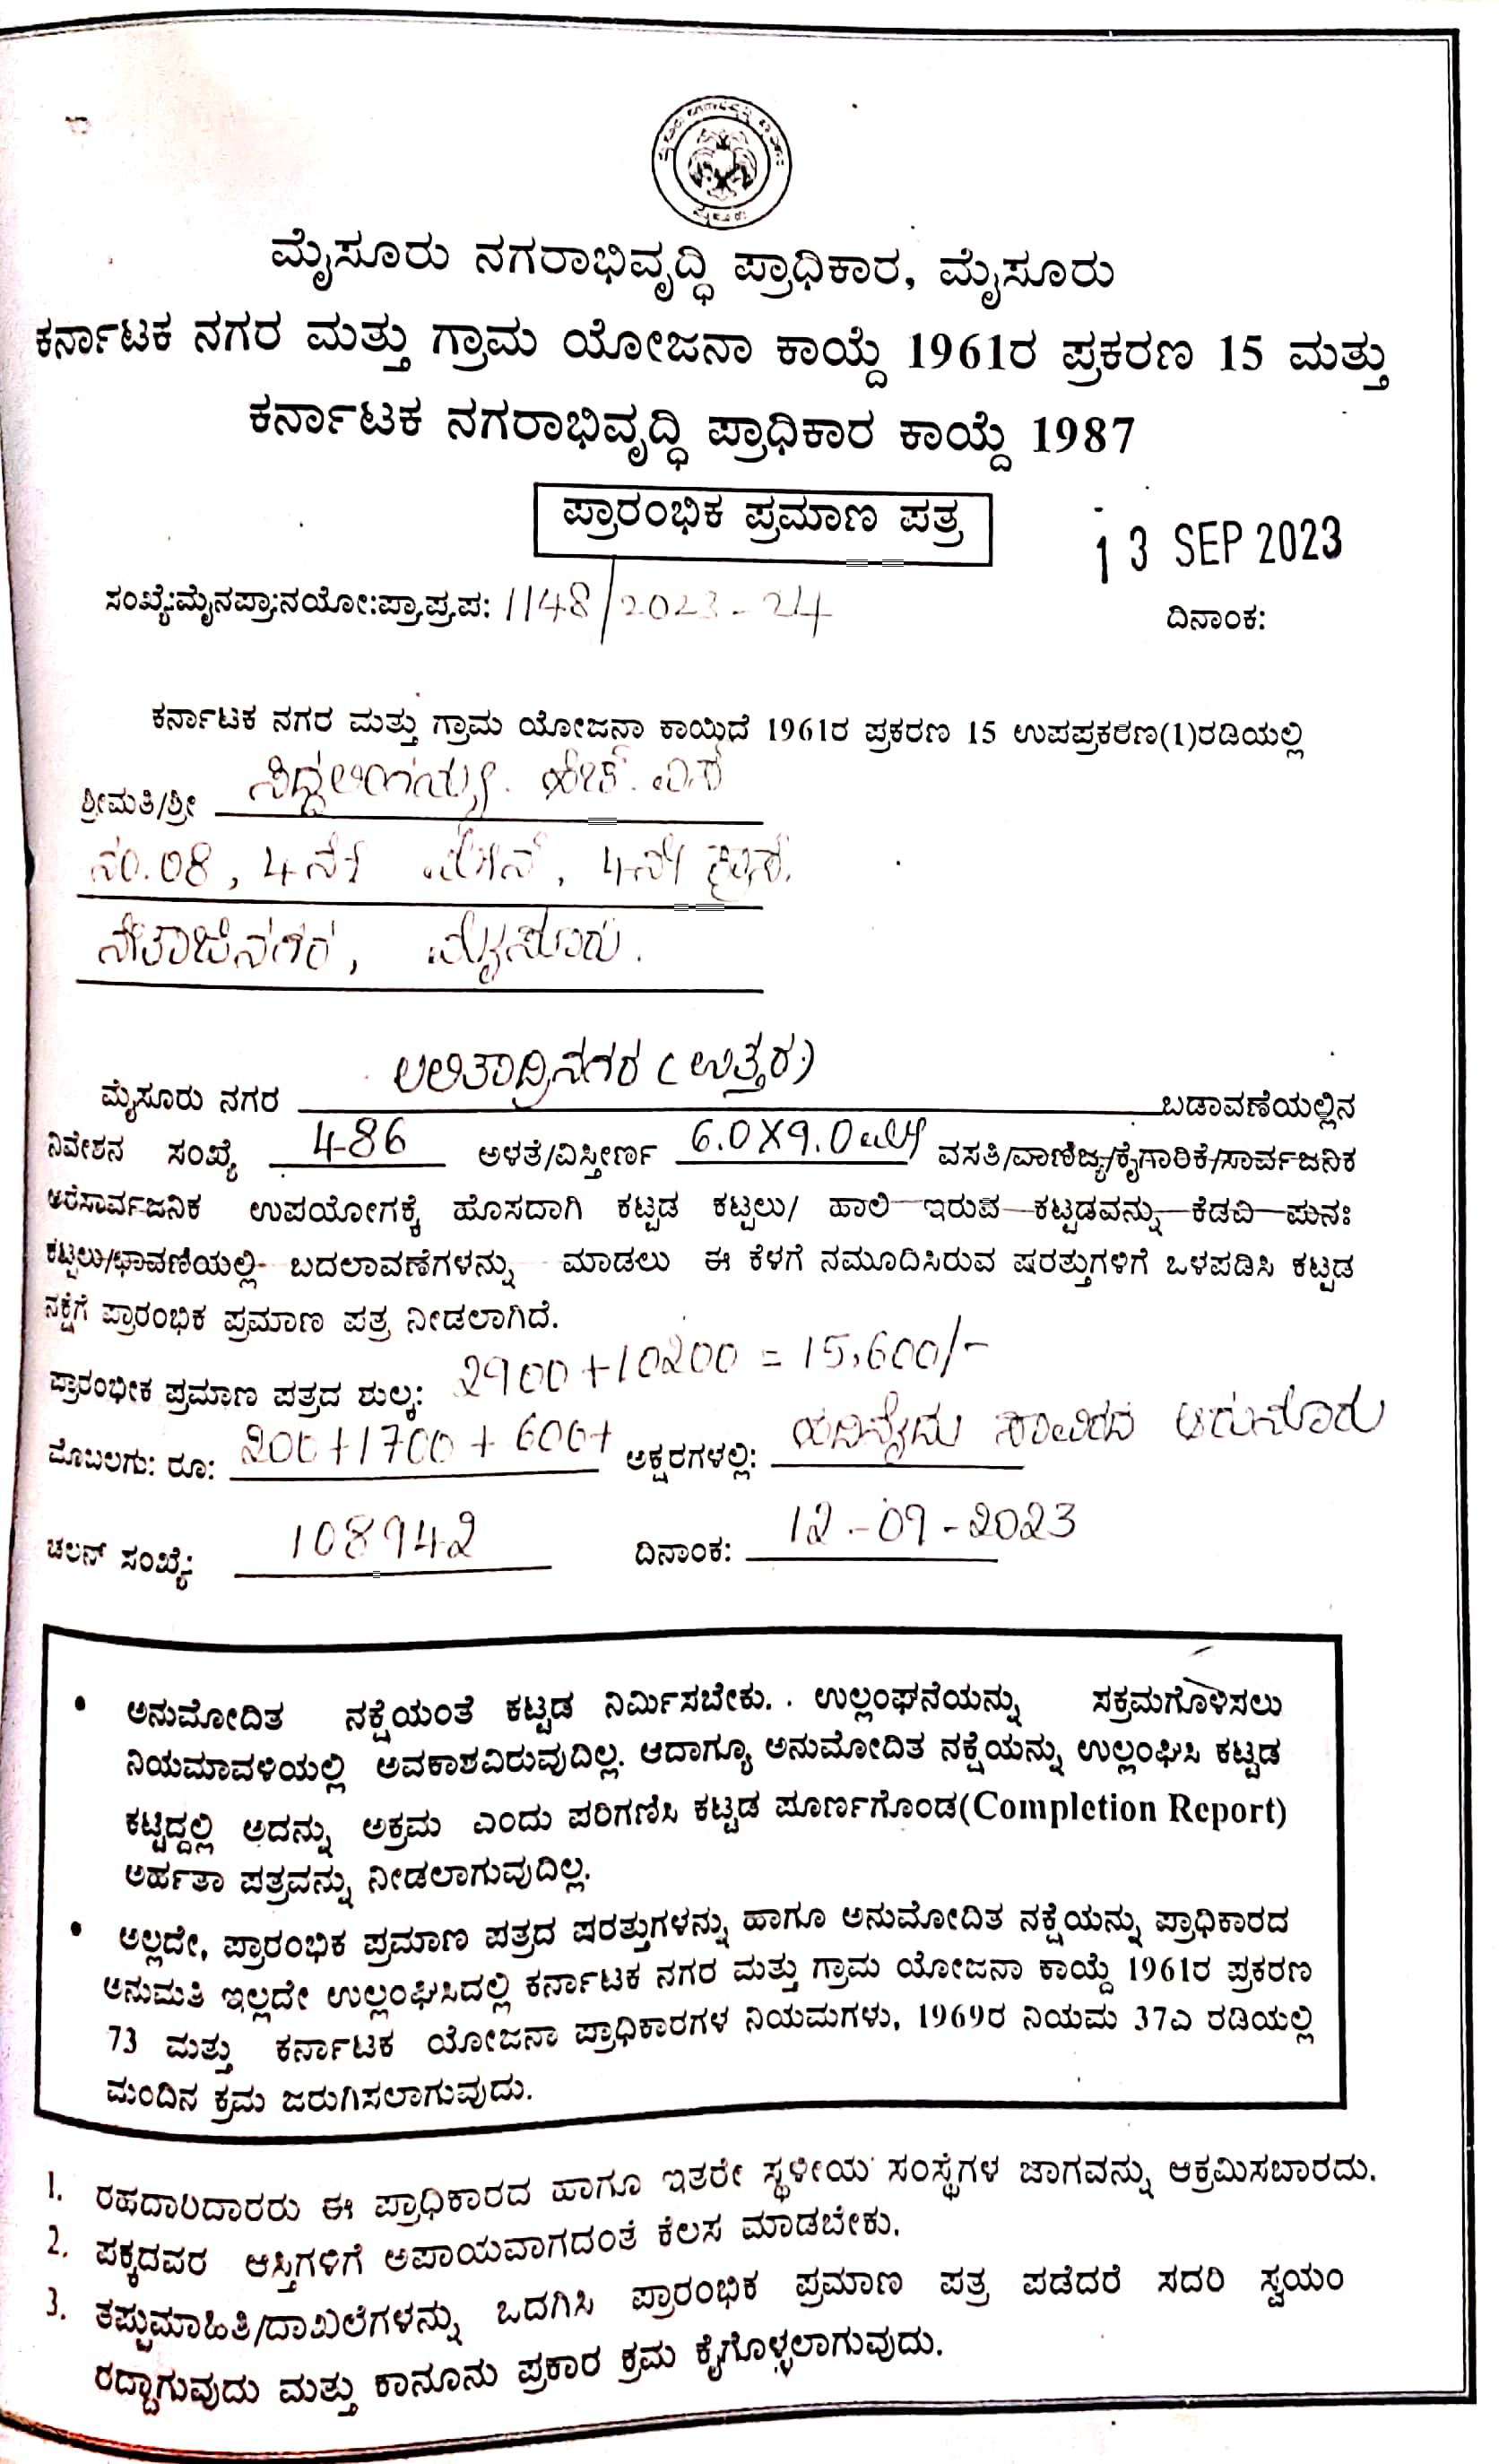 ಮೈಸೂರು ನಗರಾಭಿವೃದ್ಧಿ ಪ್ರಾಧಿಕಾರ, ಮೈಸೂರು
ಕರ್ನಾಟಕ ನಗರ ಮತ್ತು ಗ್ರಾಮ ಯೋಜನಾ ಕಾಯ್ದೆ 1961ರ ಪ್ರಕರಣ 15 ಮತ್ತು
ಕರ್ನಾಟಕ ನಗರಾಭಿವೃದ್ಧಿ ಪ್ರಾಧಿಕಾರ ಕಾಯ್ದೆ 1987
ಪ್ರಾರಂಭಿಕ ಪ್ರಮಾಣ ಪತ್ರ
13 SEP 2023
ಸಂಖ್ಯೆ:ಮೈನಪ್ರಾ:ನಯೋ:ಪ್ರಾ.ಪ್ರ.ಪ: 1148/2023-24
ದಿನಾಂಕ:
ಕರ್ನಾಟಕ ನಗರ ಮತ್ತು ಗ್ರಾಮ ಯೋಜನಾ ಕಾಯಿದೆ 1961ರ ಪ್ರಕರಣ 15 ಉಪಪ್ರಕರಣ(1)ರಡಿಯಲ್ಲಿ
ಶ್ರೀಮತಿ/ಶ್ರೀ ಸಿದ್ದಲಿಂಗಯ್ಯ. ಹೆಚ್. ಎಸ್
ನಂ.08, 4ನೇ ಮೇನ್, 4ನೇ ಕ್ರಾಸ್.
ನೇತಾಜಿನಗರ, ಮೈಸೂರು.
ಮೈಸೂರು ನಗರ ಲಲಿತಾದ್ರಿನಗರ (ಉತ್ತರ) ಬಡಾವಣೆಯಲ್ಲಿನ
ನಿವೇಶನ ಸಂಖ್ಯೆ 486 ಅಳತೆ/ವಿಸ್ತೀರ್ಣ 6.0X9.0 ಮೀ ವಸತಿ/ವಾಣಿಜ್ಯ/ಕೈಗಾರಿಕೆ/ಸಾರ್ವಜನಿಕ
ಅರೆಸಾರ್ವಜನಿಕ ಉಪಯೋಗಕ್ಕೆ ಹೊಸದಾಗಿ ಕಟ್ಟಡ ಕಟ್ಟಲು/ ಹಾಲಿ ಇರುವ ಕಟ್ಟಡವನ್ನು ಕೆಡವಿ ಪುನಃ
ಕಟ್ಟಲು/ಛಾವಣಿಯಲ್ಲಿ ಬದಲಾವಣೆಗಳನ್ನು ಮಾಡಲು ಈ ಕೆಳಗೆ ನಮೂದಿಸಿರುವ ಷರತ್ತುಗಳಿಗೆ ಒಳಪಡಿಸಿ ಕಟ್ಟಡ
ನಕ್ಷೆಗೆ ಪ್ರಾರಂಭಿಕ ಪ್ರಮಾಣ ಪತ್ರ ನೀಡಲಾಗಿದೆ.
ಪ್ರಾರಂಭೀಕ ಪ್ರಮಾಣ ಪತ್ರದ ಶುಲ್ಕ: 2900+10200 = 15,600/-
ಮೊಬಲಗು: ರೂ: 200+1700 + 600+ ಅಕ್ಷರಗಳಲ್ಲಿ: ಹದಿನೈದು ಸಾವಿರದ ಆರುನೂರು
ಚಲನ್ ಸಂಖ್ಯೆ: 108942 ದಿನಾಂಕ: 12-09-2023
• ಅನುಮೋದಿತ ನಕ್ಷೆಯಂತೆ ಕಟ್ಟಡ ನಿರ್ಮಿಸಬೇಕು. . ಉಲ್ಲಂಘನೆಯನ್ನು ಸಕ್ರಮಗೊಳಿಸಲು
ನಿಯಮಾವಳಿಯಲ್ಲಿ ಅವಕಾಶವಿರುವುದಿಲ್ಲ. ಆದಾಗ್ಯೂ ಅನುಮೋದಿತ ನಕ್ಷೆಯನ್ನು ಉಲ್ಲಂಘಿಸಿ ಕಟ್ಟಡ
ಕಟ್ಟಿದ್ದಲ್ಲಿ ಅದನ್ನು ಅಕ್ರಮ ಎಂದು ಪರಿಗಣಿಸಿ ಕಟ್ಟಡ ಪೂರ್ಣಗೊಂಡ(Completion Report)
ಅರ್ಹತಾ ಪತ್ರವನ್ನು ನೀಡಲಾಗುವುದಿಲ್ಲ.
• ಅಲ್ಲದೇ, ಪ್ರಾರಂಭಿಕ ಪ್ರಮಾಣ ಪತ್ರದ ಷರತ್ತುಗಳನ್ನು ಹಾಗೂ ಅನುಮೋದಿತ ನಕ್ಷೆಯನ್ನು ಪ್ರಾಧಿಕಾರದ
ಅನುಮತಿ ಇಲ್ಲದೇ ಉಲ್ಲಂಘಿಸಿದಲ್ಲಿ ಕರ್ನಾಟಕ ನಗರ ಮತ್ತು ಗ್ರಾಮ ಯೋಜನಾ ಕಾಯ್ದೆ 1961ರ ಪ್ರಕರಣ
73 ಮತ್ತು ಕರ್ನಾಟಕ ಯೋಜನಾ ಪ್ರಾಧಿಕಾರಗಳ ನಿಯಮಗಳು, 1969ರ ನಿಯಮ 37ಎ ರಡಿಯಲ್ಲಿ
ಮಂದಿನ ಕ್ರಮ ಜರುಗಿಸಲಾಗುವುದು.
1. ರಹದಾರಿದಾರರು ಈ ಪ್ರಾಧಿಕಾರದ ಹಾಗೂ ಇತರೇ ಸ್ಥಳೀಯ ಸಂಸ್ಥೆಗಳ ಜಾಗವನ್ನು ಆಕ್ರಮಿಸಬಾರದು.
2. ಪಕ್ಕದವರ ಆಸ್ತಿಗಳಿಗೆ ಅಪಾಯವಾಗದಂತೆ ಕೆಲಸ ಮಾಡಬೇಕು.
3. ತಪ್ಪುಮಾಹಿತಿ/ದಾಖಲೆಗಳನ್ನು ಒದಗಿಸಿ ಪ್ರಾರಂಭಿಕ ಪ್ರಮಾಣ ಪತ್ರ ಪಡೆದರೆ ಸದರಿ ಸ್ವಯಂ
ರದ್ದಾಗುವುದು ಮತ್ತು ಕಾನೂನು ಪ್ರಕಾರ ಕ್ರಮ ಕೈಗೊಳ್ಳಲಾಗುವುದು.